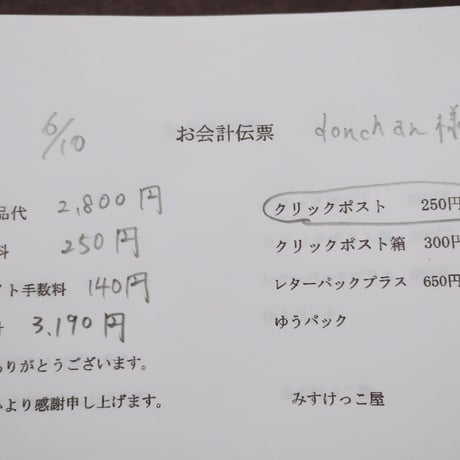 6/10 お会計伝票 donchan様
品代 2,800円 クリックポスト 250円
料 250円 クリックポスト箱 300円
イト手数料 140円 レターパックプラス 650円
計 3,190円 ゆうパック
りがとうございます。
より感謝申し上げます。 みすけっこ屋